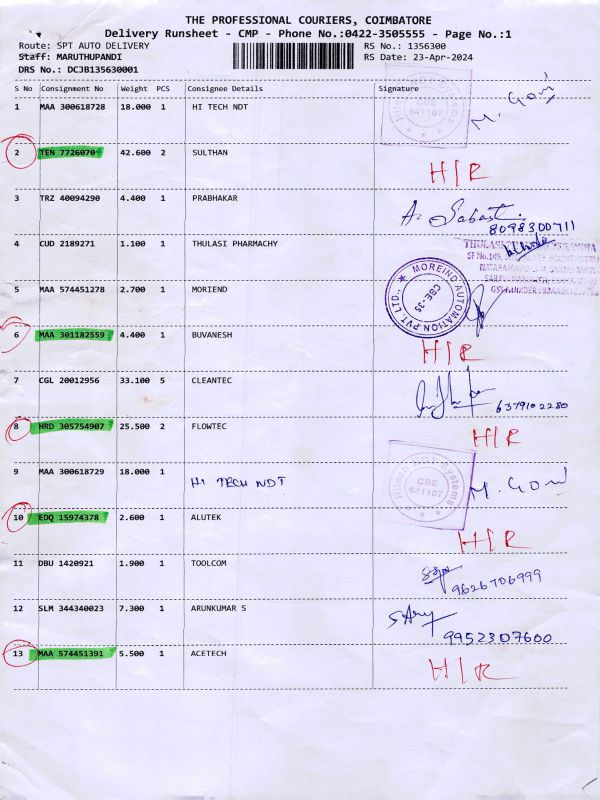 THE PROFESSIONAL COURIERS, COIMBATORE
Delivery Runsheet - CMP - Phone No.:0422-3505555 - Page No.:1
Route: SPT AUTO DELIVERY RS No.: 1356300
Staff: MARUTHUPANDI RS Date: 23-Apr-2024
DRS No.: DCJB135630001
S No Consignment No Weight PCS Consignee Details Signature
1 MAA 300618728 18.000 1 HI TECH NDT M. Gowri
CBE
641107
2 TEN 7726070 42.600 2 SULTHAN H/R
3 TRZ 40094290 4.400 1 PRABHAKAR A. Sabasti
8098300711
4 CUD 2189271 1.100 1 THULASI PHARMACHY
5 MAA 574451278 2.700 1 MORIEND
MOREIND AUTOMATION PVT. LTD.,
CBE-35
6 MAA 301182559 4.400 1 BUVANESH H/R
7 CGL 20012956 33.100 5 CLEANTEC 6379102280
8 HRD 305754907 25.500 2 FLOWTEC H/R
9 MAA 300618729 18.000 1 HI TECH NDT M. Gowri
Hitech NDT Systems
CBE
641107
10 EDQ 15974378 2.600 1 ALUTEK H/R
11 DBU 1420921 1.900 1 TOOLCOM 9626706999
12 SLM 344340023 7.300 1 ARUNKUMAR S
9952307600
13 MAA 574451391 5.500 1 ACETECH H/R